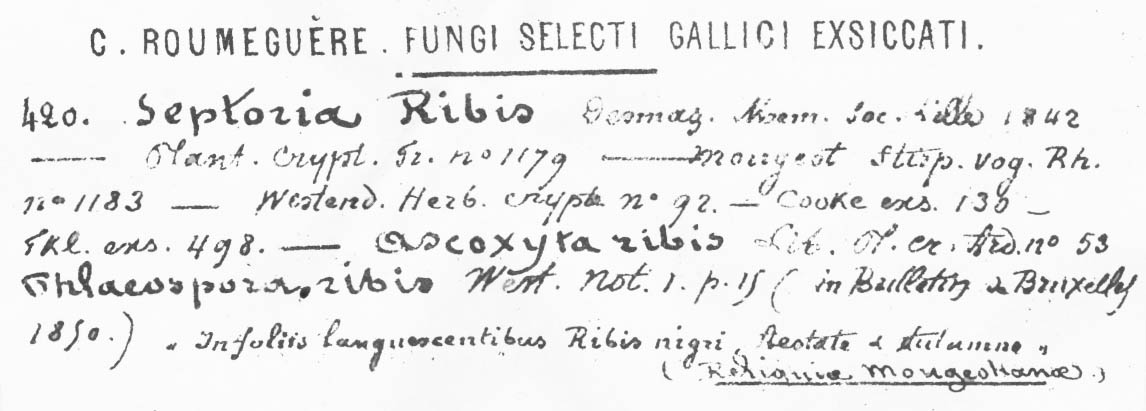 C. ROUMEGUÈRE. FUNGI SELECTI GALLICI EXSICCATI.
420. Septoria Ribis Desmaz. Mem. Soc. Lille 1842
— Plant. Crypt. Fr. nº 1179 — Mougeot Stirp. vog. Rh.
nº 1183 — Westend. Herb. crypt. nº 92. — Cooke exs. 130 —
Fkl. exs. 498. — Ascoxyta ribis Lib. Pl. cr. Ard. nº 53
Phlaeospora ribis West. Not. 1. p. 15 ( in Bulletin de Bruxelles
1850.) " In foliis languescentibus Ribis nigri, Aestate & Autumno "
( Reliquiæ Mougeotianæ.)